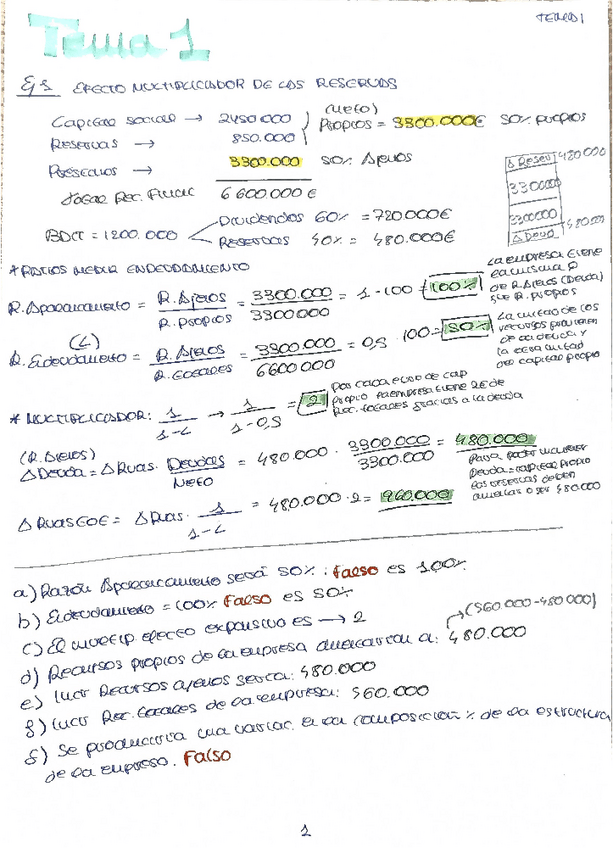 TEMA 1
Tema 1
Ej 1 EFECTO MULTIPLICADOR DE LAS RESERVAS
Capital social → 2450000
Reservas → 850.000
(Neto)
Propios = 3300.000€ 50% propios
Préstamos → 3300.000 50% Ajenos
Total Rec. Financ 6600000€
BDIT = 1200.000
Dividendos 60% = 720.000€
Reservas 40% = 480.000€
Δ Reserv 480000
3300000
3300000
Δ Deud 480000
* RATIOS MEDIR ENDEUDAMIENTO
R. Apalancamiento = R. Ajenos / R. Propios = 3300.000 / 3300000 = 1 · 100 = 100%
La empresa tiene
la misma Q
de R. Ajenos (Deuda)
que R. propios
(L)
R. Endeudamiento = R. Ajenos / R. Totales = 3300.000 / 6600000 = 0,5 · 100 = 50%
La mitad de los
recursos provienen
de la deuda y
la otra mitad
del capital propio
* MULTIPLICADOR: 1 / 1-L → 1 / 1-0,5 = 2
Por cada euro de cap
propio la empresa tiene 2€ de
Rec. totales gracias a la deuda
(R. Ajenos)
Δ Deuda = Δ Rvas · Deudas / Neto = 480.000 · 3300.000 / 3300.000 = 480.000
Para poder mantener
Deuda = capital propio
las reservas deben
480000
Δ Rvas = Δ Rvas · 1 / 1-L = 480.000 · 2 = 960.000
a) Razón Apalancamiento será 50%: Falso es 100%
b) Endeudamiento = 100% Falso es 50%
c) El multip. efecto expansivo es → 2
(960.000-480000)
d) Recursos propios de la empresa aumentan a: 480.000
e) Incr Recursos ajenos sería: 480.000
f) Incr Rec. totales de la empresa: 960.000
g) Se produciría una variac. en la composición % de la estructura
de la empresa. Falso
1